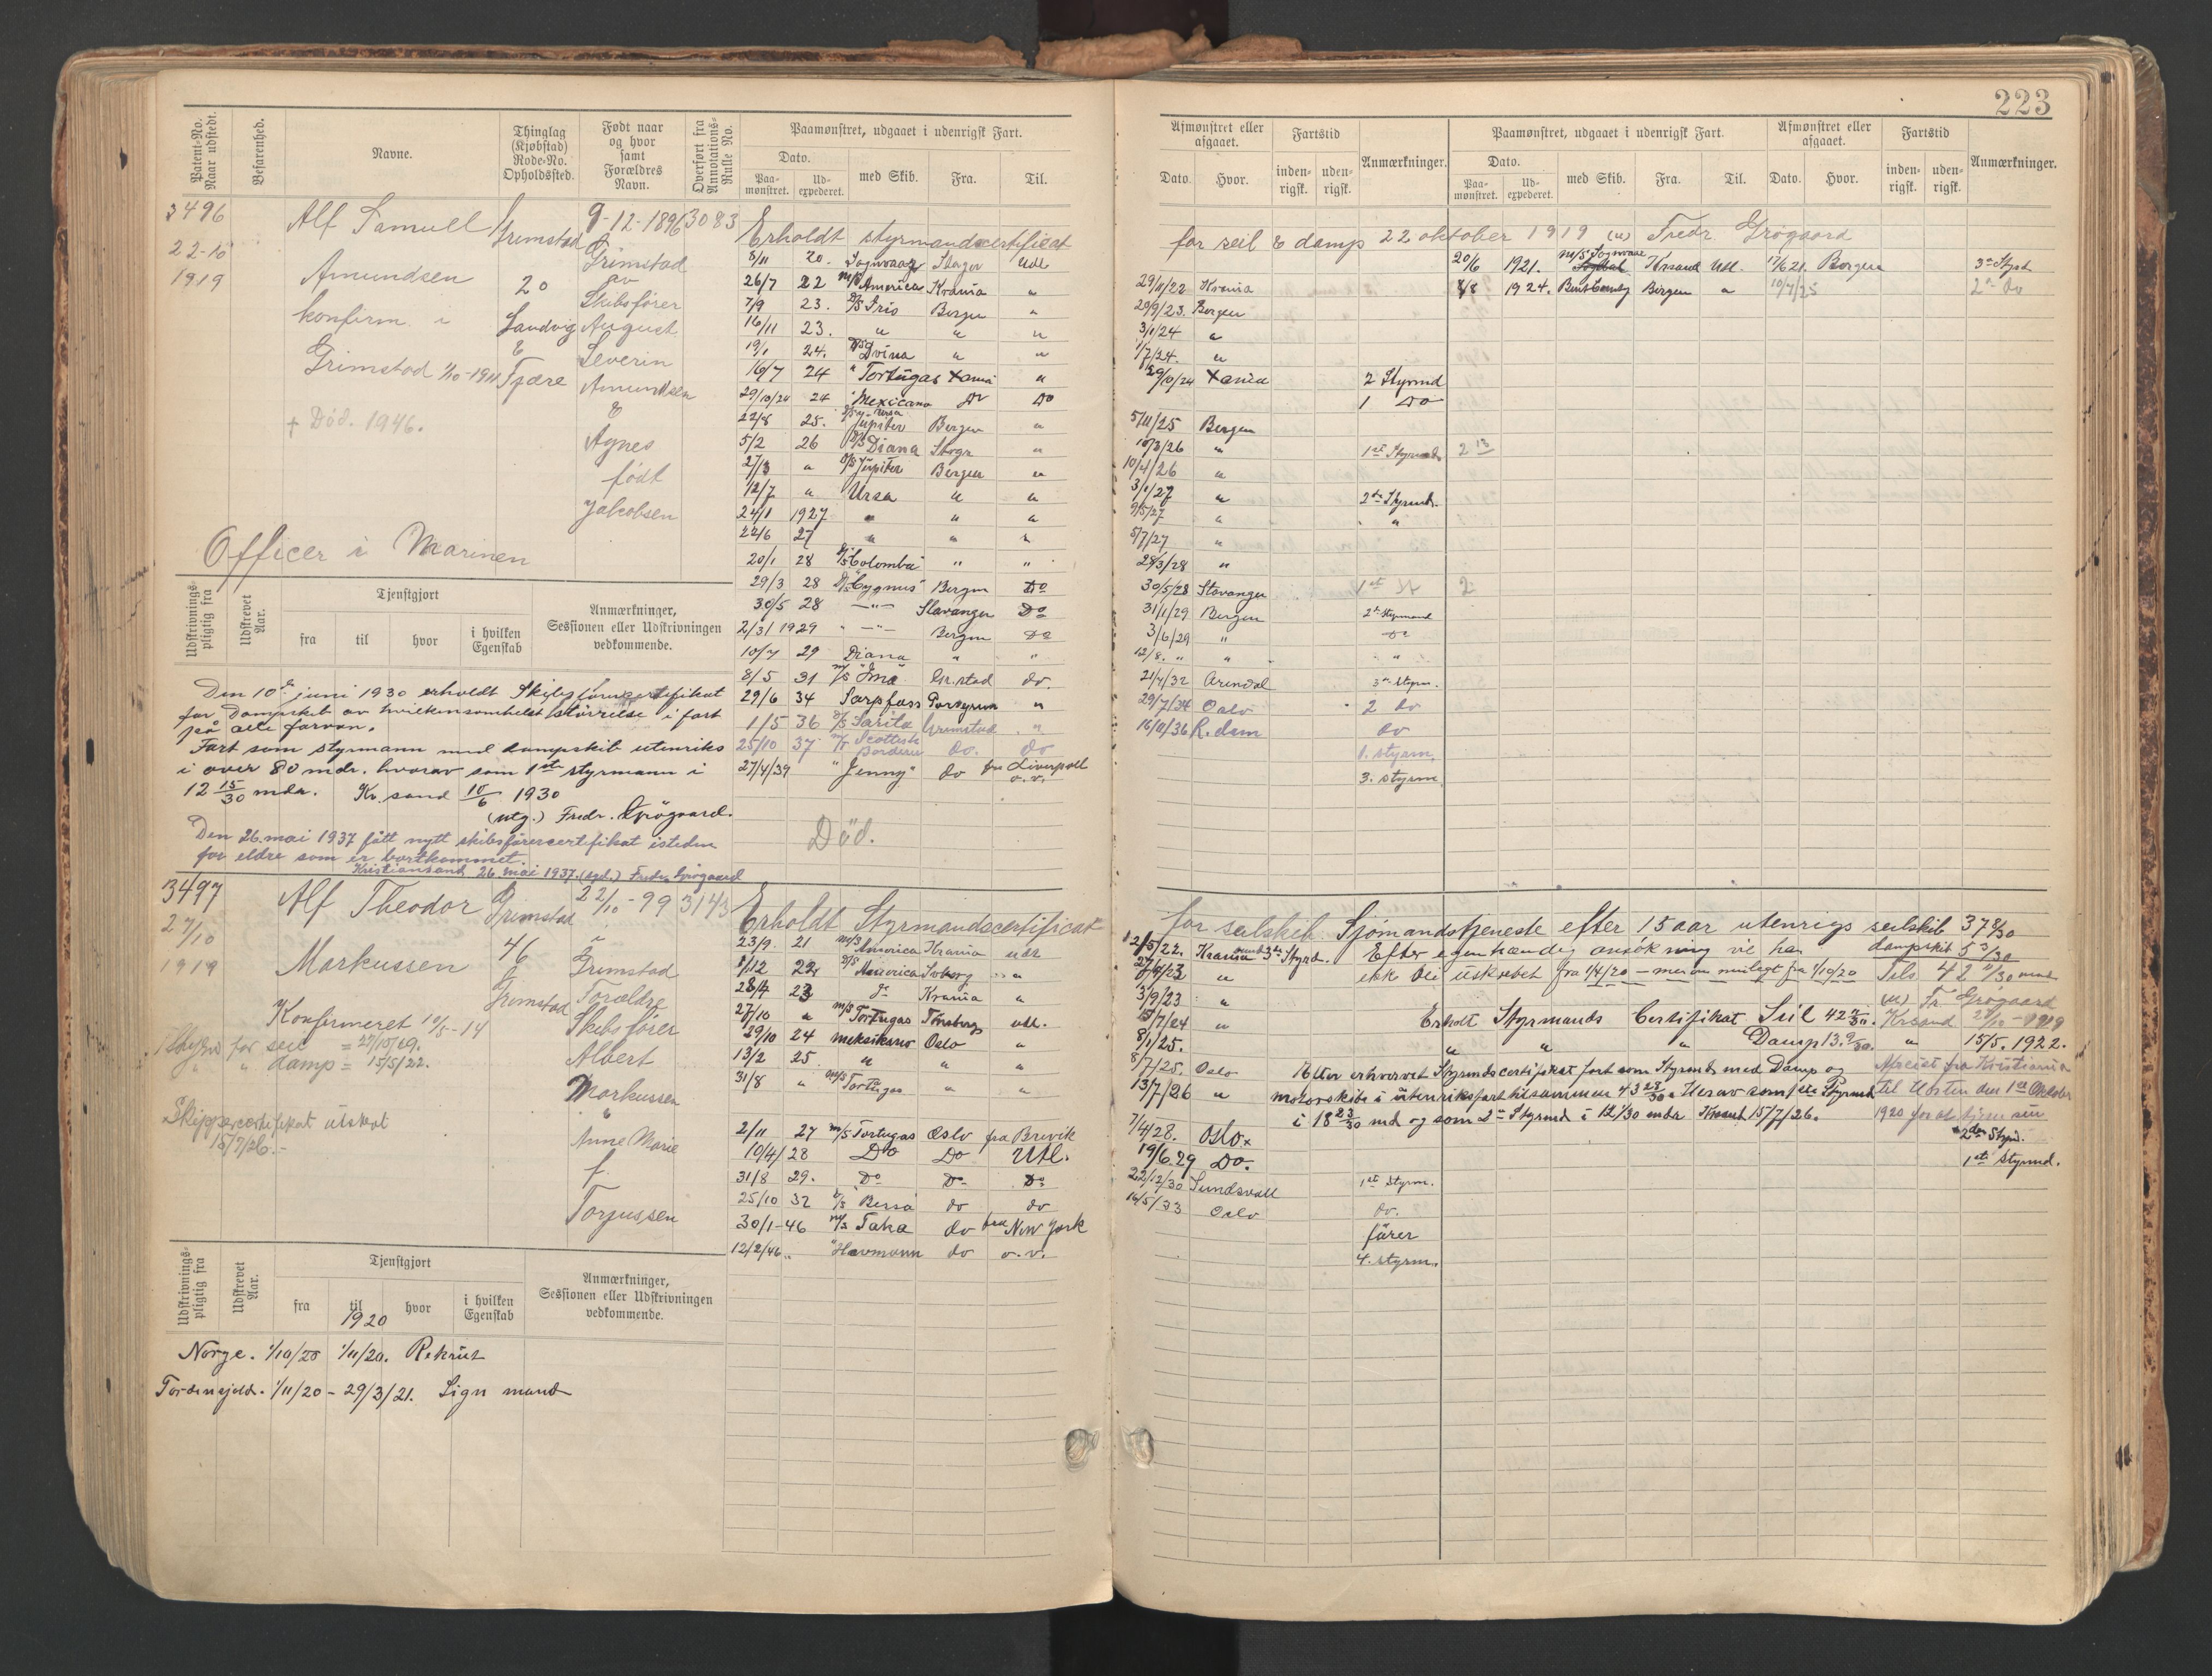 223
Patent-No. Naar udstedt.
Befarenhed.
Navne.
Thinglag (Kjøbstad) Rode-No. Opholdssted.
Født naar og hvor samt Forældres Navn.
Overført fra Annotations-Rulle No.
Paamønstret, udgaaet i udenrigsk Fart.
Dato.
Paa-mønstret.
Ud-expederet.
med Skib.
Fra.
Til.
Afmønstret eller afgaaet.
Dato.
Hvor.
Fartstid
inden-rigsk.
uden-rigsk.
Anmærkninger.
Paamønstret, udgaaet i udenrigsk Fart.
Dato.
Paa-mønstret.
Ud-expederet.
med Skib.
Fra.
Til.
Afmønstret eller afgaaet.
Dato.
Hvor.
Fartstid
inden-rigsk.
uden-rigsk.
Anmærkninger.
3496
22-10
1919
Alf Samuel
Amundsen
konfirm. i
Grimstad 1/10-1911
+ Död. 1946.
Grimstad
20
Landvig
&
Fjære
9-12-1896
Grimstad
av
Skibsfører
August
Severin
Amundsen
&
Agnes
født
Jakobsen
3083
Officer i Marinen
Erholdt styrmandscertificat
for seil & damp 22 oktober 1919 (u) Fredr. Grögaard
8/11 20. Sognvaag Utl
26/7 22 M/S America Krania "
7/9 23. D/S Iris Bergen "
16/11 23. " " "
19/1 24. D/S Dvina " "
16/7 24 " Tortugas Xania "
29/10/24 24 " Mexicano Do Do
22/8 25. Jupiter Bergen "
5/2 26 D/S Diana "
27/3 " D/S Jupiter Bergen "
12/7 " Ursa " "
24/1 1927 " " "
22/6 27 " " "
20/1 28 D/S Colombia " "
29/3 28 D/S "Cygnus" Bergen Do
30/5 28 —"— Stavanger Do
2/3 1929 —"— Bergen Do
10/7 29 Diana " "
8/5 31 M/S "Ima" Gr.stad do.
29/6 34 Sarpfoss Porsgrunn "
1/5 36 D/S Sarita Grimstad "
25/10 37 M/T Scottish Borderer do. do
27/4/39 "Jenny" do fra Liverpool o.v.
Död.
29/11/22 Krania
29/9/23. Bergen
3/1/24 "
1/7/24. "
29/10/24 Xania 2 Styrmd
1 Do
5/11/25 Bergen
10/3/26 " 1st Styrmd. 2
10/4/26 "
3/1/27 " 2de Styrmd.
9/5/27 " "
5/7/27 "
28/3/28 "
30/5/28 Stavanger 1st St 2
31/1/29 Bergen 2de Styrmand
3/6/29 " Do
12/8. " " "
21/4/32 Arendal 3de Styrm.
29/7/34 Oslo 2 do
16/11/36 R.dam do
1. styrm.
3. styrm.
20/6 1921. M/S Sognvaag Krsand Utl. 17/6 21. Bergen 3de Styrd
8/8 1924. Bergen " 10/7/25 2de Do
Udskrivnings-pligtig fra
Udskrevet Aar.
Tjenstgjort
fra
til
hvor
i hvilken Egenskab
Anmærkninger, Sessionen eller Udskrivningen vedkommende.
Den 10de juni 1930 erholdt Skibsførercertifikat
for Dampskib av hvilkensomhelst störrelse i fart
på alle farvan.
Fart som styrmann med dampskib utenriks
i over 80 mdr. hvorav som 1ste styrmann i
12 15/30 mdr. Kr.sand 10/6 1930
(utg.) Fredr. Grögaard.
Den 26. mai 1937 fått nytt skibsförercertifikat isteden
for eldre som er bortkommet.
Kristiansand 26. mai 1937. (sgd.) Fredr. Grögaard
3497
27/10
1919
Alf Theodor
Markussen
Konfirmeret 10/5-14
for seil = 27/10/19.
" " damp = 15/5/22.
Skippercertifikat utskrevt
15/7/26.-
Grimstad
46
Grimstad
22/10-99
i
Grimstad
Forældre
Skibsfører
Albert
Markussen
Anne Marie
f.
Torjussen
3143
Erholdt Styrmandscertificat
for seilskib. Sjömandstjeneste efter 15 aar utenrigs seilskib 37 8/30
dampskib 5 3/30
Tils 42 11/30 mnd
(u) Fr. Grögaard
23/9. 21 M/S America Krania utr
1/12 22 M/S America "
28/4 23 do Krania "
27/10 " M/S Tortugas Tønsberg utl.
29/10 24 meksikano Oslo "
13/2 25 " " "
31/8 " M/S Tortugas " "
2/11 27 M/S Tortugas Oslo fra Brevik
10/4/28 Do Do Utl.
31/8 29. Do Do Do
25/10 32 do do
30/1-46 M/S Taka do fra New York
12/2/46 " Havmann do o.v.
12/5/22. Krania 3de Styrd. Efter egenhændig ansökning vil han
ikke bli utskrevet fra 1/4/20 - men om muligt fra 1/10/20
3/9/23 "
15/7/24 "
8/1/25.
8/7/25. Oslo
13/7/26 "
7/4/28. Oslo
19/6.29 Do.
22/12/30 Sundsvall 1st Styrm.
16/5/33 Oslo do.
fører
4. styrm.
Erholdt Styrmands Certifikat Seil 42 11/30. Krsand 27/10-1919
" " " Damp 13. 9/30. " 15/5. 1922.
Efter erhvervet Styrmdscertifikat fart som Styrmd med Damp og
motorskibe i utenriksfart tilsammen 43 28/30. Herav som 1ste Styrmd
i 18 23/30 md og som 2de Styrmd i 12 1/30 mdr Krsand 15/7/26.
Afreist fra Kristiania
til Horten den 1st Oktober
1920 for at tjene sin
2den Styrd.
1ste Styrmd.
Udskrivnings-pligtig fra
Udskrevet Aar.
Tjenstgjort
fra
til
hvor
i hvilken Egenskab
Anmærkninger, Sessionen eller Udskrivningen vedkommende.
1920
Norge. 1/10/20 1/11/20. Rekrut
Tordenskjold. 1/11/20 - 29/3/21. Sign mand